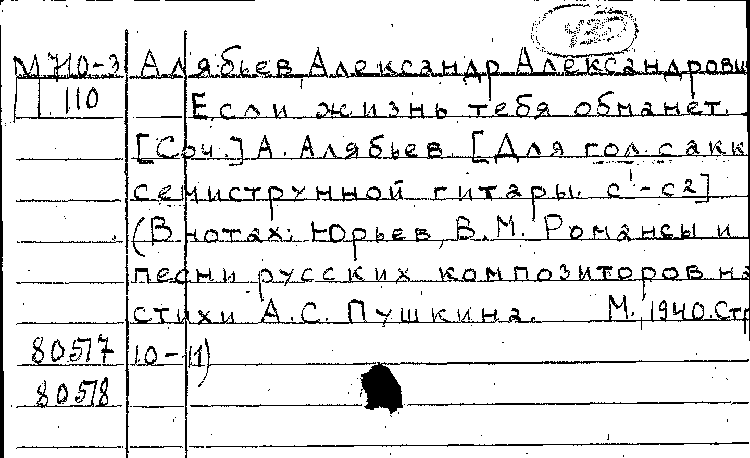 420
М 710-3 Алябьев, Александр Александрови
110 Если жизнь тебя обманет.
[Соч.] А. Алябьев. [Для гол. с акк
семиструнной гитары. c¹-c2]
(В нотах: Юрьев, В.М. Романсы и
песни русских композиторов на
стихи А.С. Пушкина. М., 1940. Стр
80517 10-11)
80518